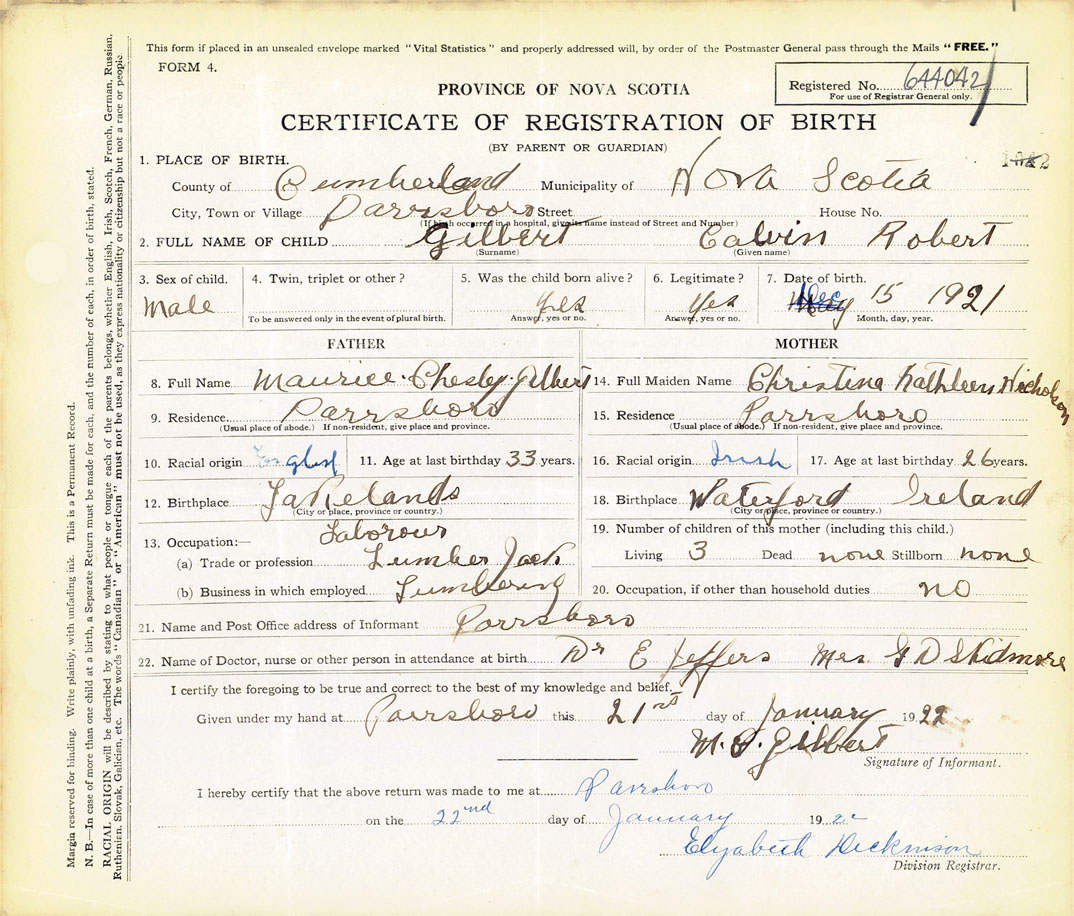 This form if placed in an unsealed envelope marked "Vital Statistics" and properly addressed will, by order of the Postmaster General pass through the Mails "FREE."
FORM 4.
Registered No. 644042
For use of Registrar General only.
PROVINCE OF NOVA SCOTIA
CERTIFICATE OF REGISTRATION OF BIRTH
(BY PARENT OR GUARDIAN)
1. PLACE OF BIRTH.
County of Cumberland Municipality of Nova Scotia
City, Town or Village Parrsboro Street House No.
(If birth occurred in a hospital, give its name instead of Street and Number)
2. FULL NAME OF CHILD Gilbert Calvin Robert
(Surname) (Given name)
3. Sex of child. 4. Twin, triplet or other? 5. Was the child born alive? 6. Legitimate? 7. Date of birth.
Male Yes Yes Dec 15 1921
To be answered only in the event of plural birth. Answer, yes or no. Answer, yes or no. Month, day, year.
FATHER MOTHER
8. Full Name Maurice Chesley Gilbert 14. Full Maiden Name Christina Kathleen Nicholson
9. Residence Parrsboro 15. Residence Parrsboro
(Usual place of abode.) If non-resident, give place and province. (Usual place of abode.) If non-resident, give place and province.
10. Racial origin English 11. Age at last birthday 33 years. 16. Racial origin Irish 17. Age at last birthday 26 years.
12. Birthplace Lakelands 18. Birthplace Waterford Ireland
(City or place, province or country.) (City or place, province or country.)
13. Occupation:— Laborour 19. Number of children of this mother (including this child.)
(a) Trade or profession Lumber Jack Living 3 Dead none Stillborn none
(b) Business in which employed Lumbering 20. Occupation, if other than household duties no
21. Name and Post Office address of Informant Parrsboro
22. Name of Doctor, nurse or other person in attendance at birth Dr E Jeffers Mrs G D Skidmore
I certify the foregoing to be true and correct to the best of my knowledge and belief.
Given under my hand at Parrsboro this 21rst day of January 1922
M. C. Gilbert
Signature of Informant.
I hereby certify that the above return was made to me at Parrsboro
on the 22nd day of January 1922
Elizabeth Dickinson
Division Registrar.
Margin reserved for binding. Write plainly, with unfading ink. This is a Permanent Record.
N. B.—In case of more than one child at a birth, a Separate Return must be made for each, and the number of each, in order of birth, stated.
RACIAL ORIGIN will be described by stating to what people or tongue each of the parents belongs, whether English, Irish, Scotch, French, German, Russian,
Ruthenian, Slovak, Galician, etc. The words "Canadian" or "American" must not be used, as they express nationality or citizenship but not a race or people